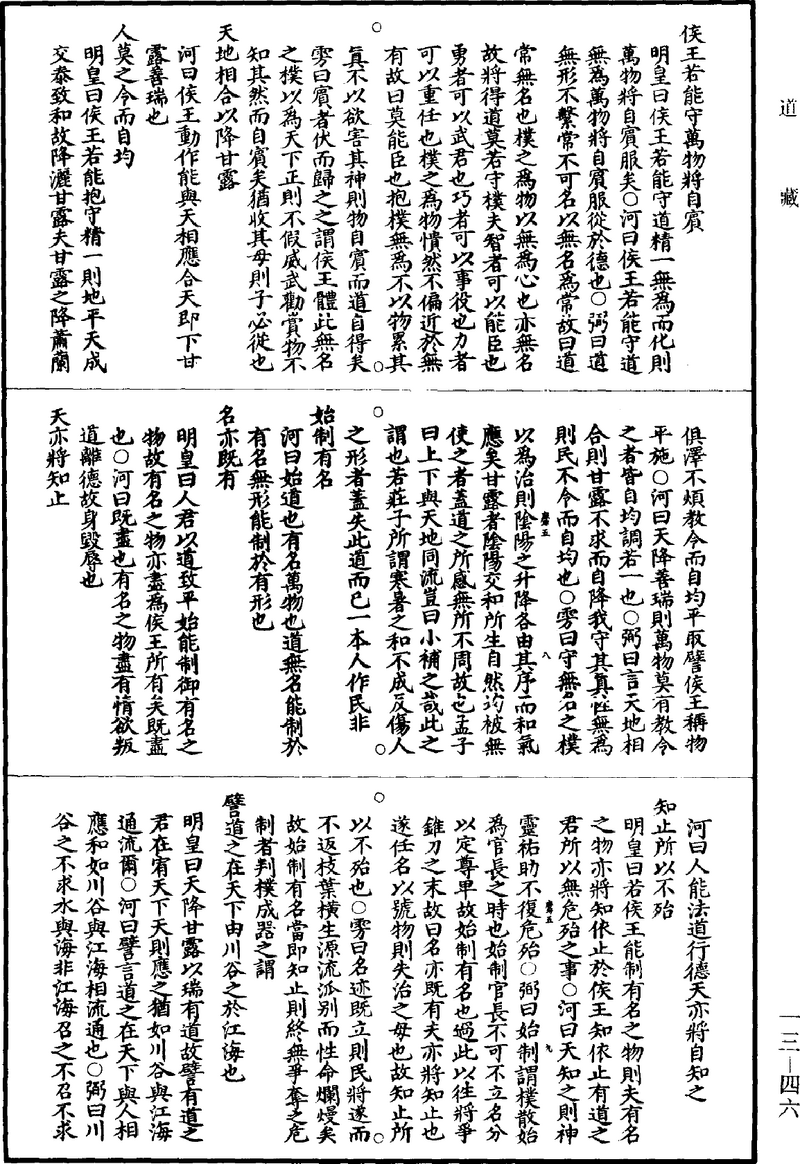 道藏
一三—四六
侯王若能守萬物將自賓
明皇曰侯王若能守道精一無為而化則
萬物將自賓服矣○河曰侯王若能守道
無為萬物將自賓服從於德也○弼曰道
無形不繫常不可名以無名為常故曰道
常無名也樸之為物以無為心也亦無名
故將得道莫若守樸夫智者可以能臣也
勇者可以武君也巧者可以事役也力者
可以重任也樸之為物憒然不偏近於無
有故曰莫能臣也抱樸無為不以物累其
真不以欲害其神則物自賓而道自得矣
雱曰賓者伏而歸之之謂侯王體此無名
之樸以為天下正則不假威武勸賞物不
知其然而自賓矣猶收其母則子必從也
天地相合以降甘露
河曰侯王動作能與天相應合天即下甘
露善瑞也
人莫之令而自均
明皇曰侯王若能抱守精一則地平天成
交泰致和故降灑甘露夫甘露之降蕭蘭
俱澤不煩教令而自均平取譬侯王稱物
平施○河曰天降善瑞則萬物莫有教令
之者皆自均調若一也○弼曰言天地相
合則甘露不求而自降我守其真性無為
則民不令而自均也○雱曰守無名之樸
以為治則陰陽之升降各由其序而和氣
應矣甘露者陰陽交和所生自然均被無
使之者蓋道之所感無所不周故也孟子
曰上下與天地同流豈曰小補之哉此之
謂也若莊子所謂寒暑之和不成反傷人
之形者蓋失此道而已一本人作民非
始制有名
河曰始道也有名萬物也道無名能制於
有名無形能制於有形也
名亦既有
明皇曰人君以道致平始能制御有名之
物故有名之物亦盡為侯王所有矣既盡
也○河曰既盡也有名之物盡有情欲叛
道離德故身毀辱也
天亦將知止
河曰人能法道行德天亦將自知之
知止所以不殆
明皇曰若侯王能制有名之物則夫有名
之物亦將知依止於侯王知依止有道之
君所以無危殆之事○河曰天知之則神
靈祐助不復危殆○弼曰始制謂樸散始
為官長之時也始制官長不可不立名分
以定尊卑故始制有名也過此以往將爭
錐刀之末故曰名亦既有夫亦將知止也
遂任名以號物則失治之母也故知止所
以不殆也○雱曰名迹既立則民將遂而
不返枝葉橫生源流派別而性命爛熳矣
故始制有名當即知止則終無爭奪之危
制者判樸成器之謂
譬道之在天下由川谷之於江海也
明皇曰天降甘露以瑞有道故譬有道之
君在宥天下天則應之猶如川谷與江海
通流爾○河曰譬言道之在天下與人相
應和如川谷與江海相流通也○弼曰川
谷之不求水與海非江海召之不召不求